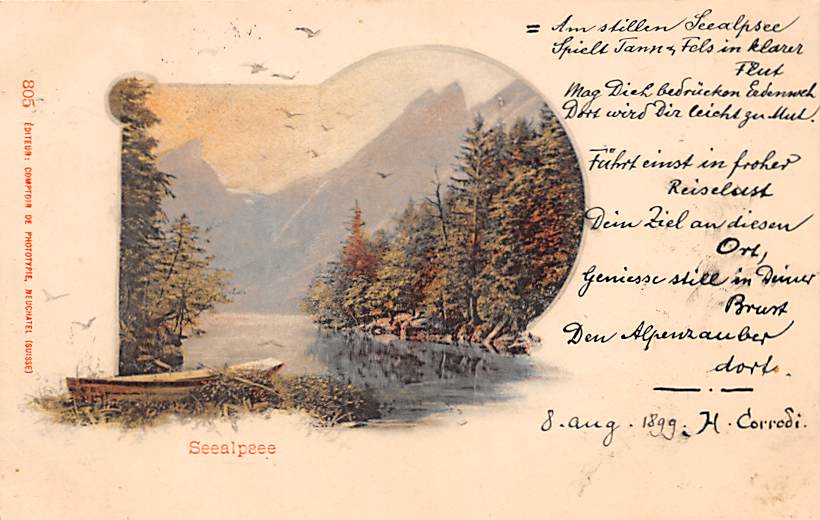 = Am stillen Seealpsee
Spielt Tann & Fels in klarer
Flut
Mag Dich bedrücken Erdenweh
Dort wird Dir leicht zu Mut.
Führt einst in froher
Reiselust
Dein Ziel an diesen
Ort,
Geniesse still in Deiner
Brust
Den Alpenzauber
dort.
8. Aug. 1899. H. Corrodi.
805 ÉDITEUR: COMPTOIR DE PHOTOTYPIE, NEUCHATEL (SUISSE)
Seealpsee